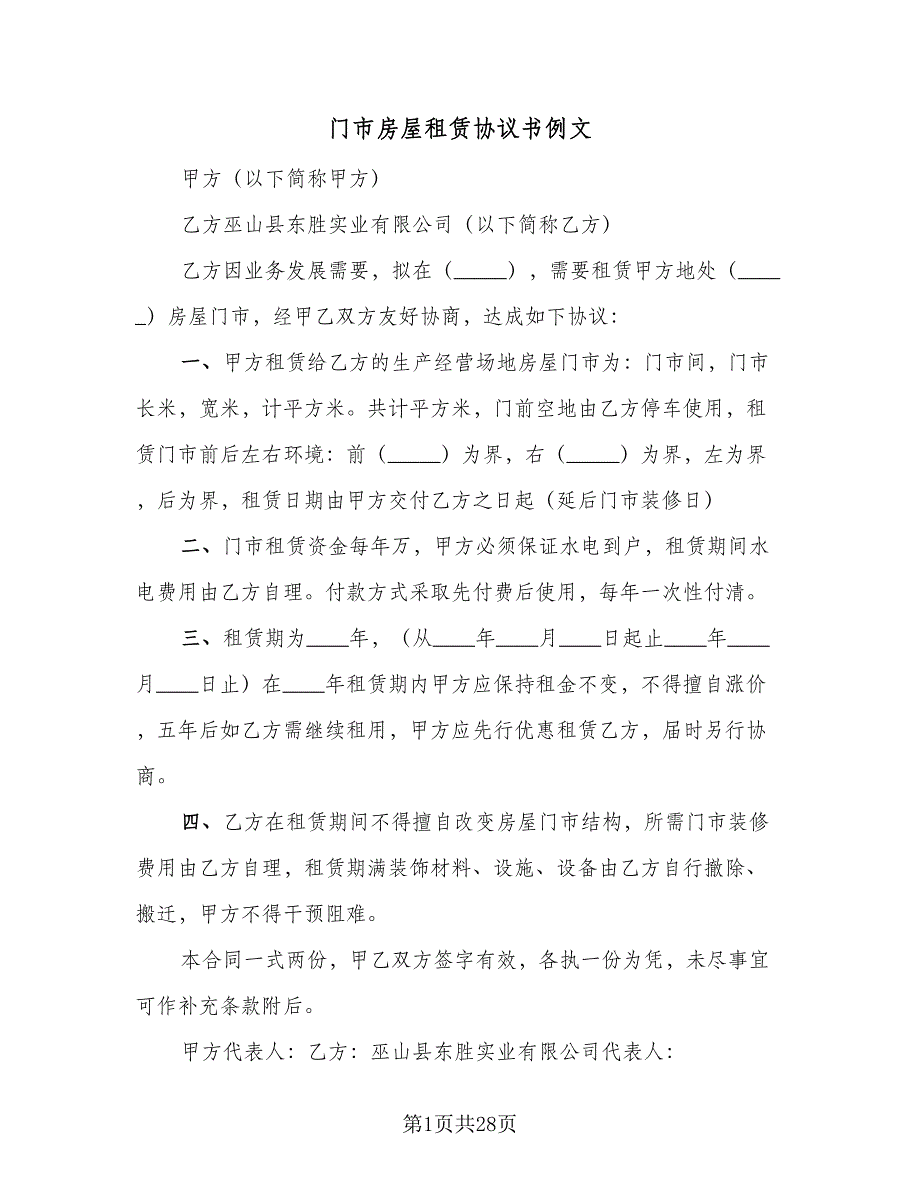 门市房屋租赁协议书例文
甲方（以下简称甲方）
乙方巫山县东胜实业有限公司（以下简称乙方）
乙方因业务发展需要，拟在（_____），需要租赁甲方地处（____
_）房屋门市，经甲乙双方友好协商，达成如下协议：
一、甲方租赁给乙方的生产经营场地房屋门市为：门市间，门市
长米，宽米，计平方米。共计平方米，门前空地由乙方停车使用，租
赁门市前后左右环境：前（_____）为界，右（_____）为界，左为界
，后为界，租赁日期由甲方交付乙方之日起（延后门市装修日）
二、门市租赁资金每年万，甲方必须保证水电到户，租赁期间水
电费用由乙方自理。付款方式采取先付费后使用，每年一次性付清。
三、租赁期为____年，（从____年____月____日起止____年____
月____日止）在____年租赁期内甲方应保持租金不变，不得擅自涨价
，五年后如乙方需继续租用，甲方应先行优惠租赁乙方，届时另行协
商。
四、乙方在租赁期间不得擅自改变房屋门市结构，所需门市装修
费用由乙方自理，租赁期满装饰材料、设施、设备由乙方自行撤除、
搬迁，甲方不得干预阻难。
本合同一式两份，甲乙双方签字有效，各执一份为凭，未尽事宜
可作补充条款附后。
甲方代表人：乙方：巫山县东胜实业有限公司代表人：
第1页共28页